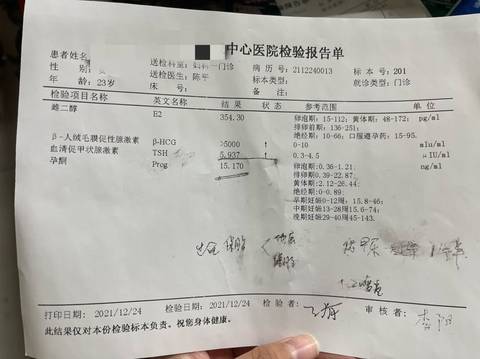 中心医院检验报告单
患者姓名:
送检科室: 妇科一门诊
病历号: 2112240013
标本号: 201
性别:
送检医生: 陈平
标本类型:
就诊类型: 门诊
年龄: 23岁
床号:
备注:
检验项目名称 英文名称 结果 状态 参考范围 单位
雌二醇 E2 354.30 卵泡期: 15-112; 黄体期: 48-172; pg/ml
排卵前期: 136-251;
绝经期: 10-66; 口服避孕药: 15-95.
β-人绒毛膜促性腺激素 β-HCG >5000 ↑ 0-10 mIu/ml
血清促甲状腺激素 TSH 5.937 ↑ 0.3-4.5 μIU/ml
孕酮 Prog 15.170 卵泡期: 0.36-1.21. ng/ml
排卵期: 0.39-22.87.
黄体期: 2.12-26.44.
绝经期: 0-0.89.
早期妊娠0-12周: 15.8-46;
中期妊娠13-28周15.6-74;
晚期妊娠29-40周45-143.
打印日期: 2021/12/24
检验日期: 2021/12/24
检验者:
审核者:
此结果仅对本份检验标本负责。祝您身体健康。